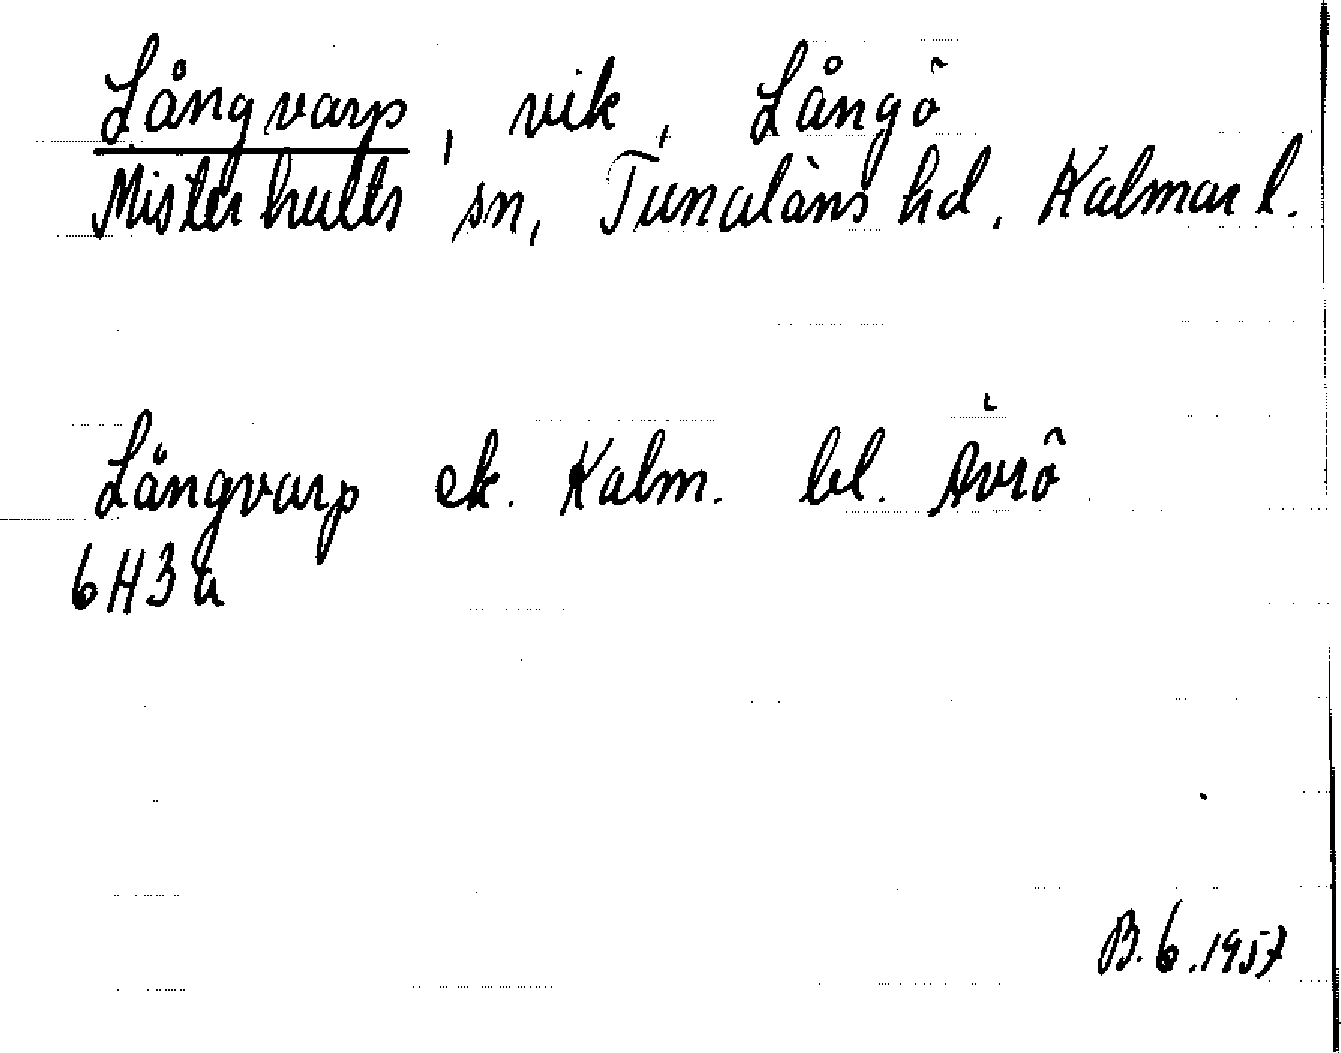 Långvarp, vik, Långö
Misterhults sn, Tunaläns hd. Kalmar l.
Långvarp ek. Kalm. bl. Ävrö
6H3a
B.6.1957